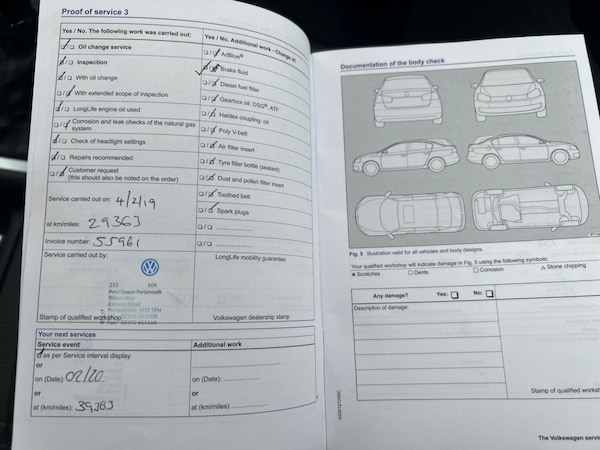 Proof of service 3
Yes / No. The following work was carried out:
Oil change service
Inspection
With oil change
With extended scope of inspection
LongLife engine oil used
Corrosion and leak checks of the natural gas
system
Check of headlight settings
Repairs recommended
Customer request
(this should also be noted on the order)
Service carried out on: 4/2/19
at km/miles: 29363
Invoice number: 55961
Service carried out by:
Stamp of qualified workshop
Yes / No. Additional work - Change of
AdBlue®
Brake fluid
Diesel fuel filter
Gearbox oil: DSG®, ATF
Haldex coupling: oil
Poly V-belt
Air filter insert
Tyre filler bottle (sealant)
Dust and pollen filter insert
Toothed belt
Spark plugs
LongLife mobility guarantee:
Volkswagen dealership stamp
Your next services
Service event
as per Service interval display
or
on (Date): 02/20
or
at (km/miles): 39363
Additional work
on (Date):
or
at (km/miles):
Documentation of the body check
Fig. 5 Illustration valid for all vehicles and body designs.
Your qualified workshop will indicate damage in Fig. 5 using the following symbols:
× Scratches
○ Dents
□ Corrosion
△ Stone chipping
Any damage? Yes: No:
Description of damage:
Stamp of qualified works
The Volkswagen servic